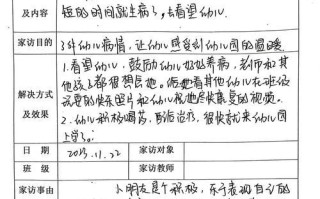 及内容
短的时间就生病了,去看望幼儿
家访目的
了解幼儿病情,让幼儿感受到幼儿园的温暖
解决方式
及效果
1.看望幼儿,鼓励幼儿好好养病,老师和其
他孩子都很想他。给他看其他幼儿在班级
的快乐照片和幼儿祝他尽快康复的视频。
2.幼儿积极喝药,配合治疗,很快就来幼儿园
上学了。
日 期
2023.11.22
家访对象
班 级
家访教师
家访事由
小朋友是个积极,乐于表现自己的